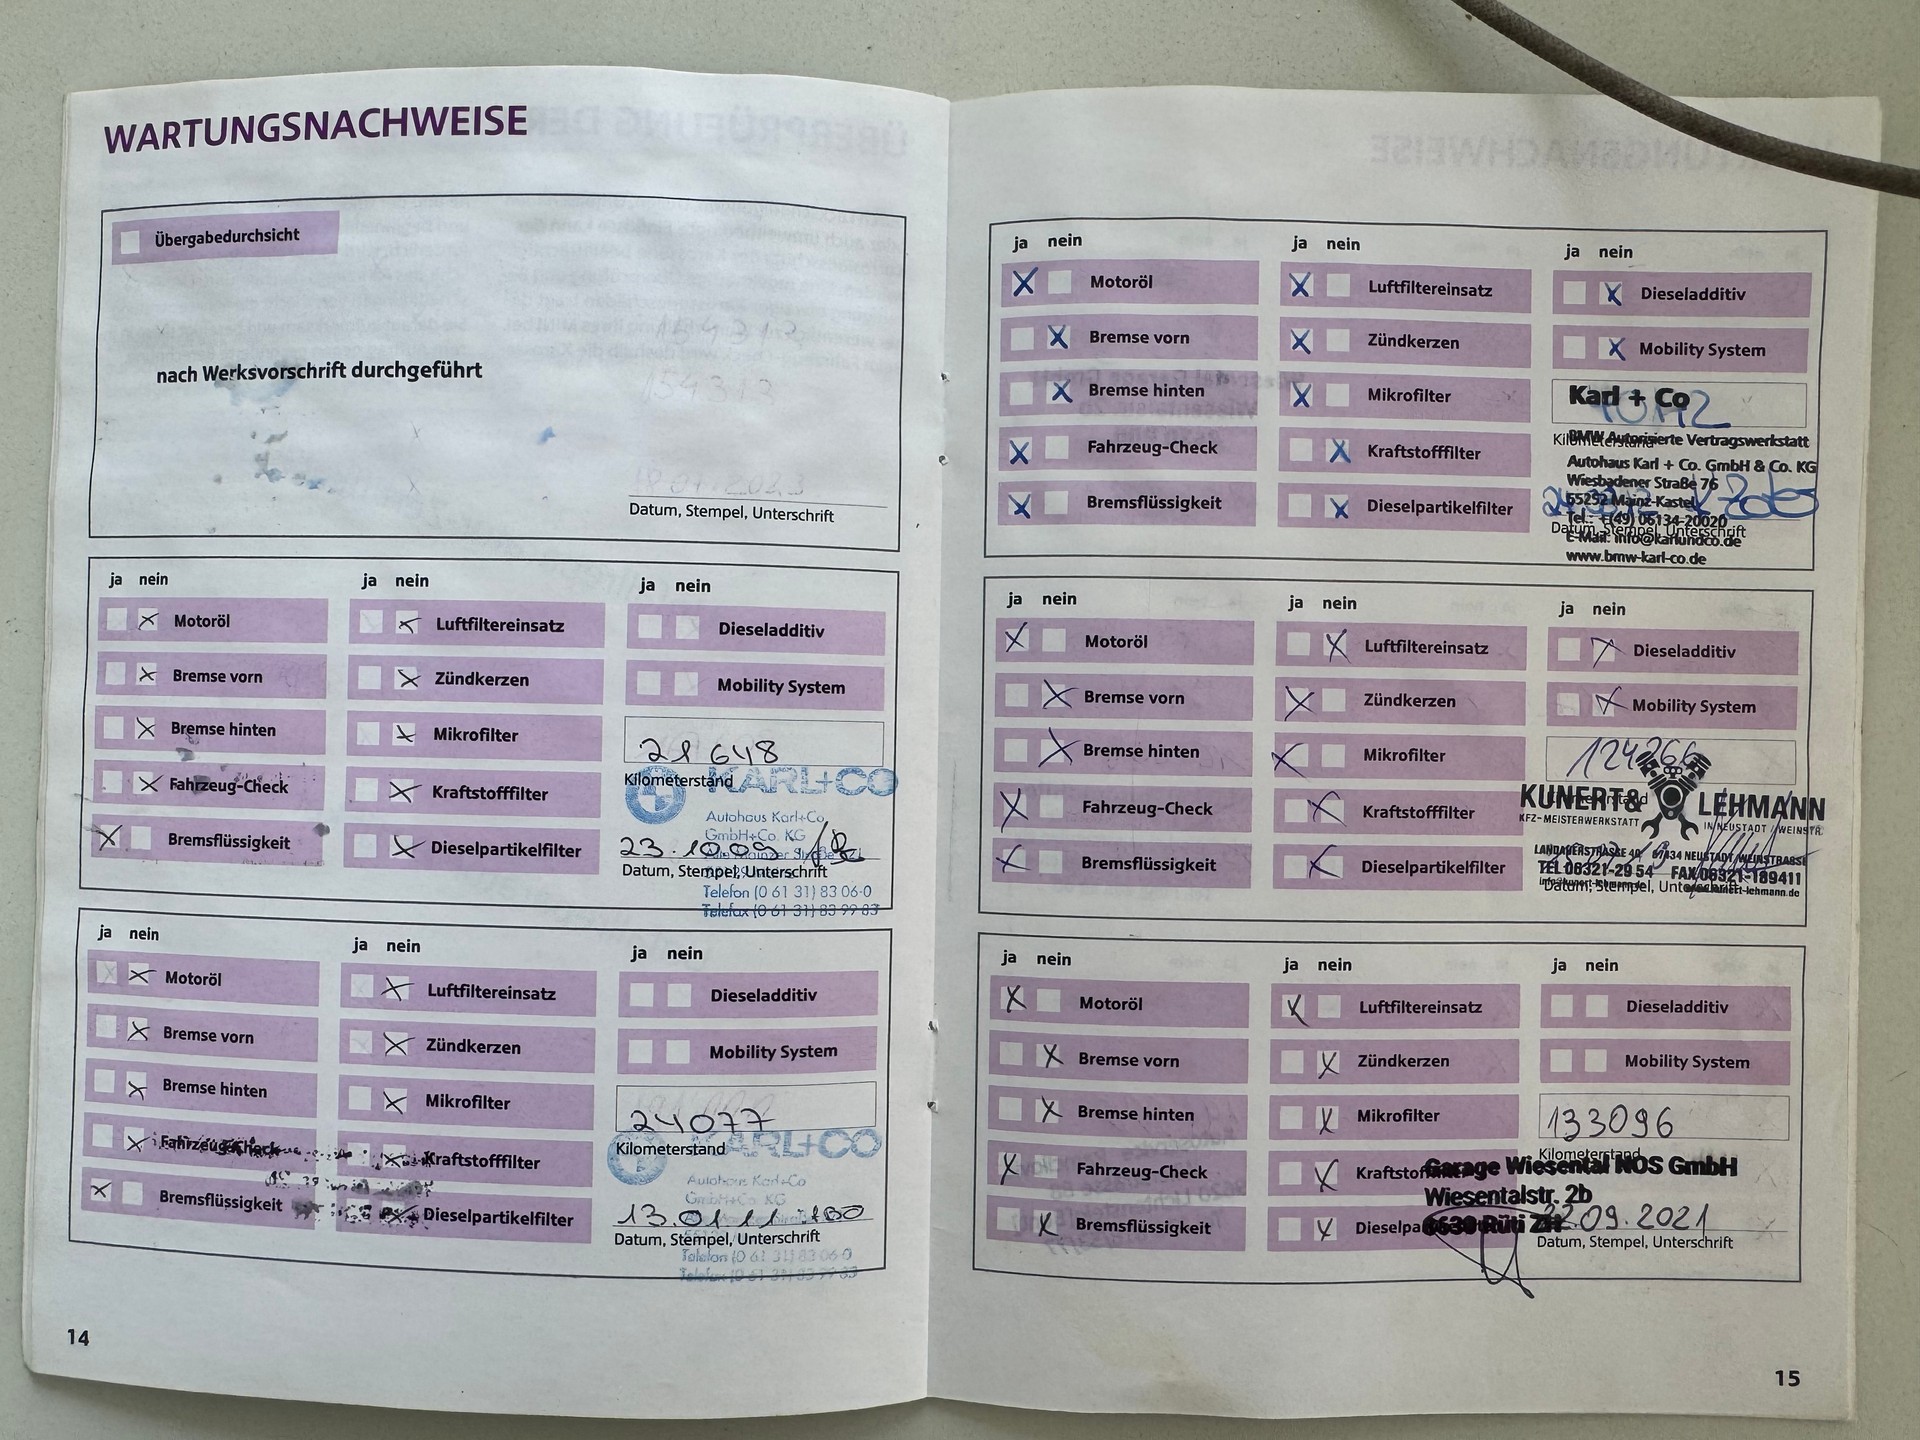 WARTUNGSNACHWEISE
Übergabedurchsicht
nach Werksvorschrift durchgeführt
Datum, Stempel, Unterschrift
ja nein ja nein ja nein
Motoröl Luftfiltereinsatz Dieseladditiv
Bremse vorn Zündkerzen Mobility System
Bremse hinten Mikrofilter
21 648
Kilometerstand
KARL+CO
Fahrzeug-Check Kraftstofffilter
Autohaus Karl+Co
GmbH+Co. KG
Bremsflüssigkeit Dieselpartikelfilter
23.10.09
Datum, Stempel, Unterschrift
Telefon (0 61 31) 83 06-0
Telefax (0 61 31) 83 99 83
ja nein ja nein ja nein
Motoröl Luftfiltereinsatz Dieseladditiv
Bremse vorn Zündkerzen Mobility System
Bremse hinten Mikrofilter
24077
Kilometerstand
KARL+CO
Fahrzeug-Check Kraftstofffilter
Autohaus Karl+Co
GmbH+Co. KG
Bremsflüssigkeit Dieselpartikelfilter
13.01.11
Datum, Stempel, Unterschrift
Telefon (0 61 31) 83 06-0
Telefax (0 61 31) 83 99 83
14
ja nein ja nein ja nein
Motoröl Luftfiltereinsatz Dieseladditiv
Bremse vorn Zündkerzen Mobility System
Bremse hinten Mikrofilter
Karl + Co
Kilometerstand
BMW Autorisierte Vertragswerkstatt
Fahrzeug-Check Kraftstofffilter
Autohaus Karl + Co. GmbH & Co. KG
Wiesbadener Straße 76
Bremsflüssigkeit Dieselpartikelfilter
55252 Mainz-Kastel
Tel.: +(49) 06134-20020
Datum, Stempel, Unterschrift
E-Mail: info@karlundco.de
www.bmw-karl-co.de
ja nein ja nein ja nein
Motoröl Luftfiltereinsatz Dieseladditiv
Bremse vorn Zündkerzen Mobility System
Bremse hinten Mikrofilter
124266
KUNERT & LEHMANN
KFZ-MEISTERWERKSTATT IN NEUSTADT / WEINSTR.
Fahrzeug-Check Kraftstofffilter
LANDAUERSTRASSE 40 67434 NEUSTADT WEINSTRASSE
Bremsflüssigkeit Dieselpartikelfilter
TEL 06321-29 54 FAX 06321-189411
Datum, Stempel, Unterschrift
ja nein ja nein ja nein
Motoröl Luftfiltereinsatz Dieseladditiv
Bremse vorn Zündkerzen Mobility System
Bremse hinten Mikrofilter
133096
Kilometerstand
Fahrzeug-Check
Garage Wiesental NOS GmbH
Wiesentalstr. 2b
Bremsflüssigkeit
8630 Rüti ZH
22.09.2021
Datum, Stempel, Unterschrift
15